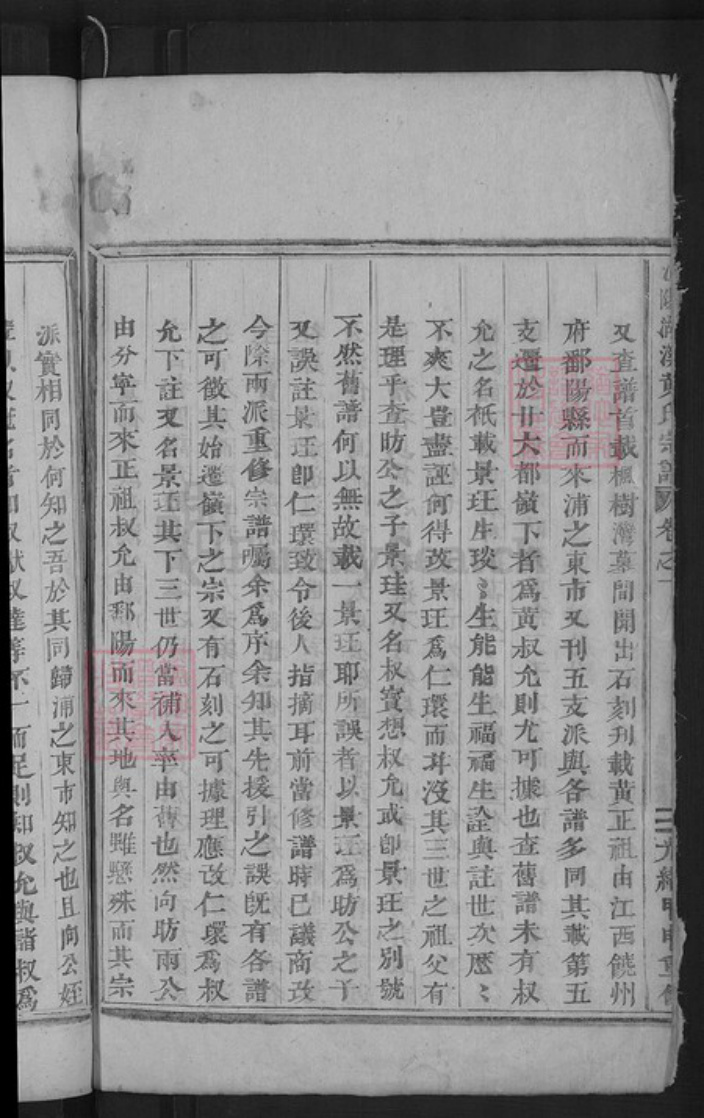 又查譜首載楓樹灣墓間開出石刻刋載黃正祖由江西饒州
府鄱陽縣而來浦之東市又刊五支派與各譜多同其載第五
支遷於廿大都嶺下者爲黃叔允則尤可據也查舊譜未有叔
允之名秖載景玨生琰〻生能能生福福生詮與註世次歷〻
不爽大豈盡誣何得攺景玨爲仁環而幷沒其三世之祖父有
是理乎查昉公之子景珪又名叔實想叔允或卽景玨之別號
不然舊譜何以無故載一景玨耶所誤者以景玨爲昉公之子
又誤註景玨卽仁環致令後人指摘耳前當修譜時已議商攺
今除兩派重修宗譜囑余爲序余知其先援引之誤旣有各譜
之可徵其始遷嶺下之宗又有石刻之可據理應改仁環爲叔
允下註又名景玨其下三世仍當補入率由舊也然向昉兩公
由分寧而來正祖叔允由鄱陽而來其地與名雖懸殊而其宗
派實相同於何知之吾於其同歸浦之東市知之也且向公姪
叔猷叔達等不一而足則知叔允與諸叔爲
黃氏宗譜 卷之一
光緒甲申重修